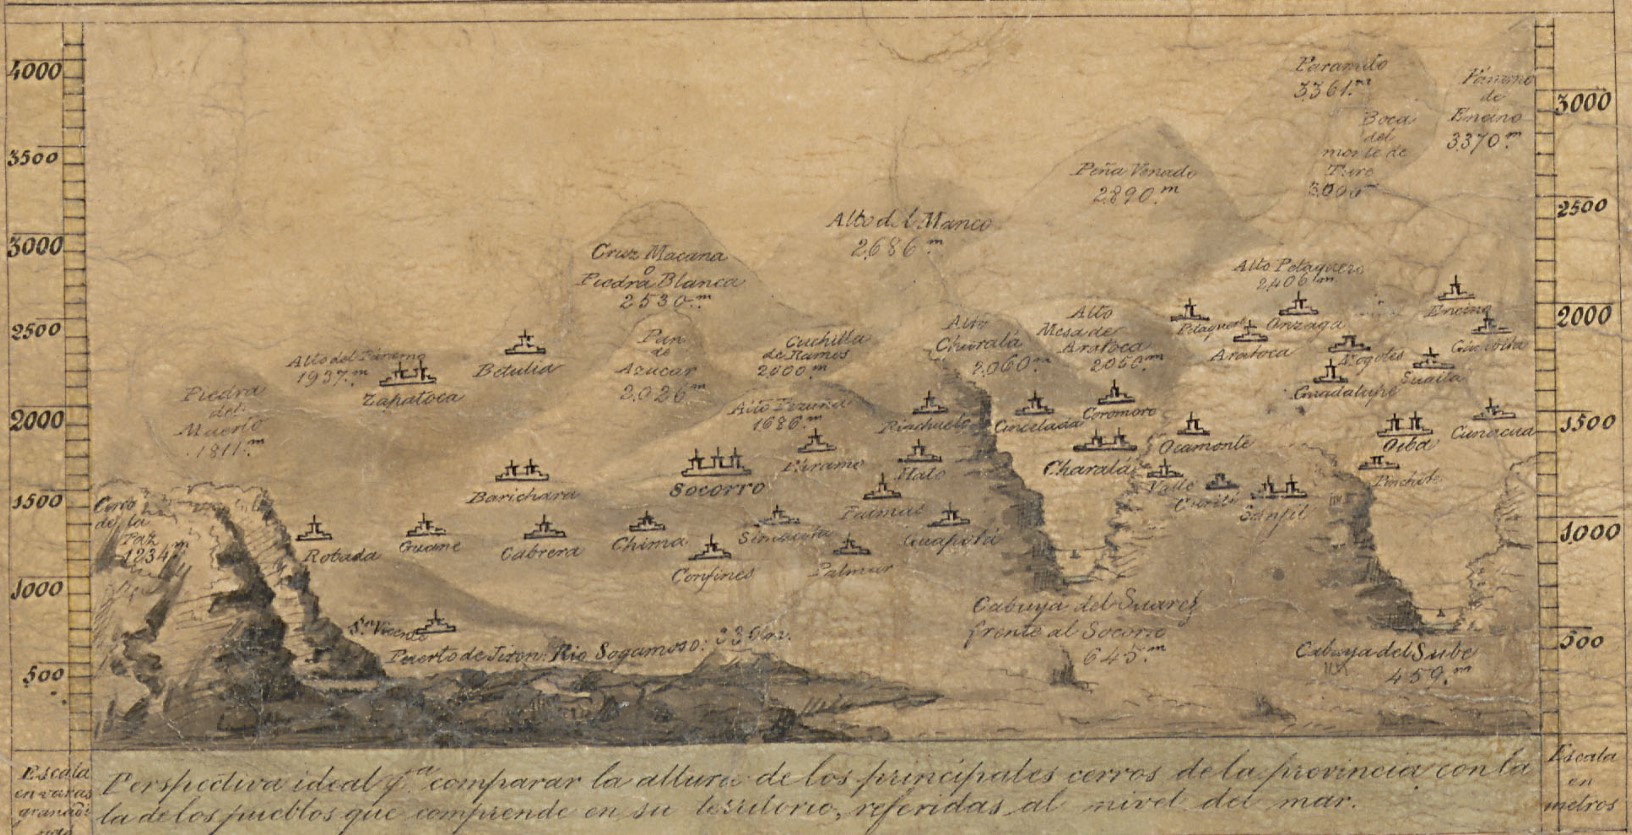 4000
3500
3000
2500
2000
1500
1000
500
3000
2500
2000
1500
1000
500
Paramito
3361.m
Páramo
de
Encino
3370.m
Boca
del
monte de
Ture
3000m
Peña Venado
2890.m
Alto del Manco
2686.m
Cruz Macana
o
Piedra Blanca
2530.m
Alto Petaquero
2406m
Encino
Petaquero
Onzaga
Aratoca
Mogotes
Sualta
Guadalupe
Alto
Charalá
2060m
Alto
Mesa de
Aratoca
2050m
Pan
de
Azúcar
2026m
Cuchilla
de Ramos
2000m
Betulia
Alto del Páramo
1937.m
Zapatoca
Piedra
del
1811.m
1686m
Páramo
Rinchuelo
Cincelada
Coromoro
Ocamonte
Charalá
Oiba
Cunacua
Pinchote
Valle
Curití
Sanjil
Hato
Socorro
Barichara
Palmas
Guapotá
Simacota
Chima
Cabrera
Guane
Robada
Confines
Palmar
Cerro
de la
Paz
1234m
Sn. Vicente
Puerto de Jiron. Rio Sogamoso:
Cabuya del Suarez
frente al Socorro
645.m
Cabuya del Sube
459.m
Escala
en varas
Perspectiva ideal pa. comparar la altura de los principales cerros de la provincia con la
la de los pueblos que comprende en su territorio, referidas al nivel del mar.
Escala
en
metros